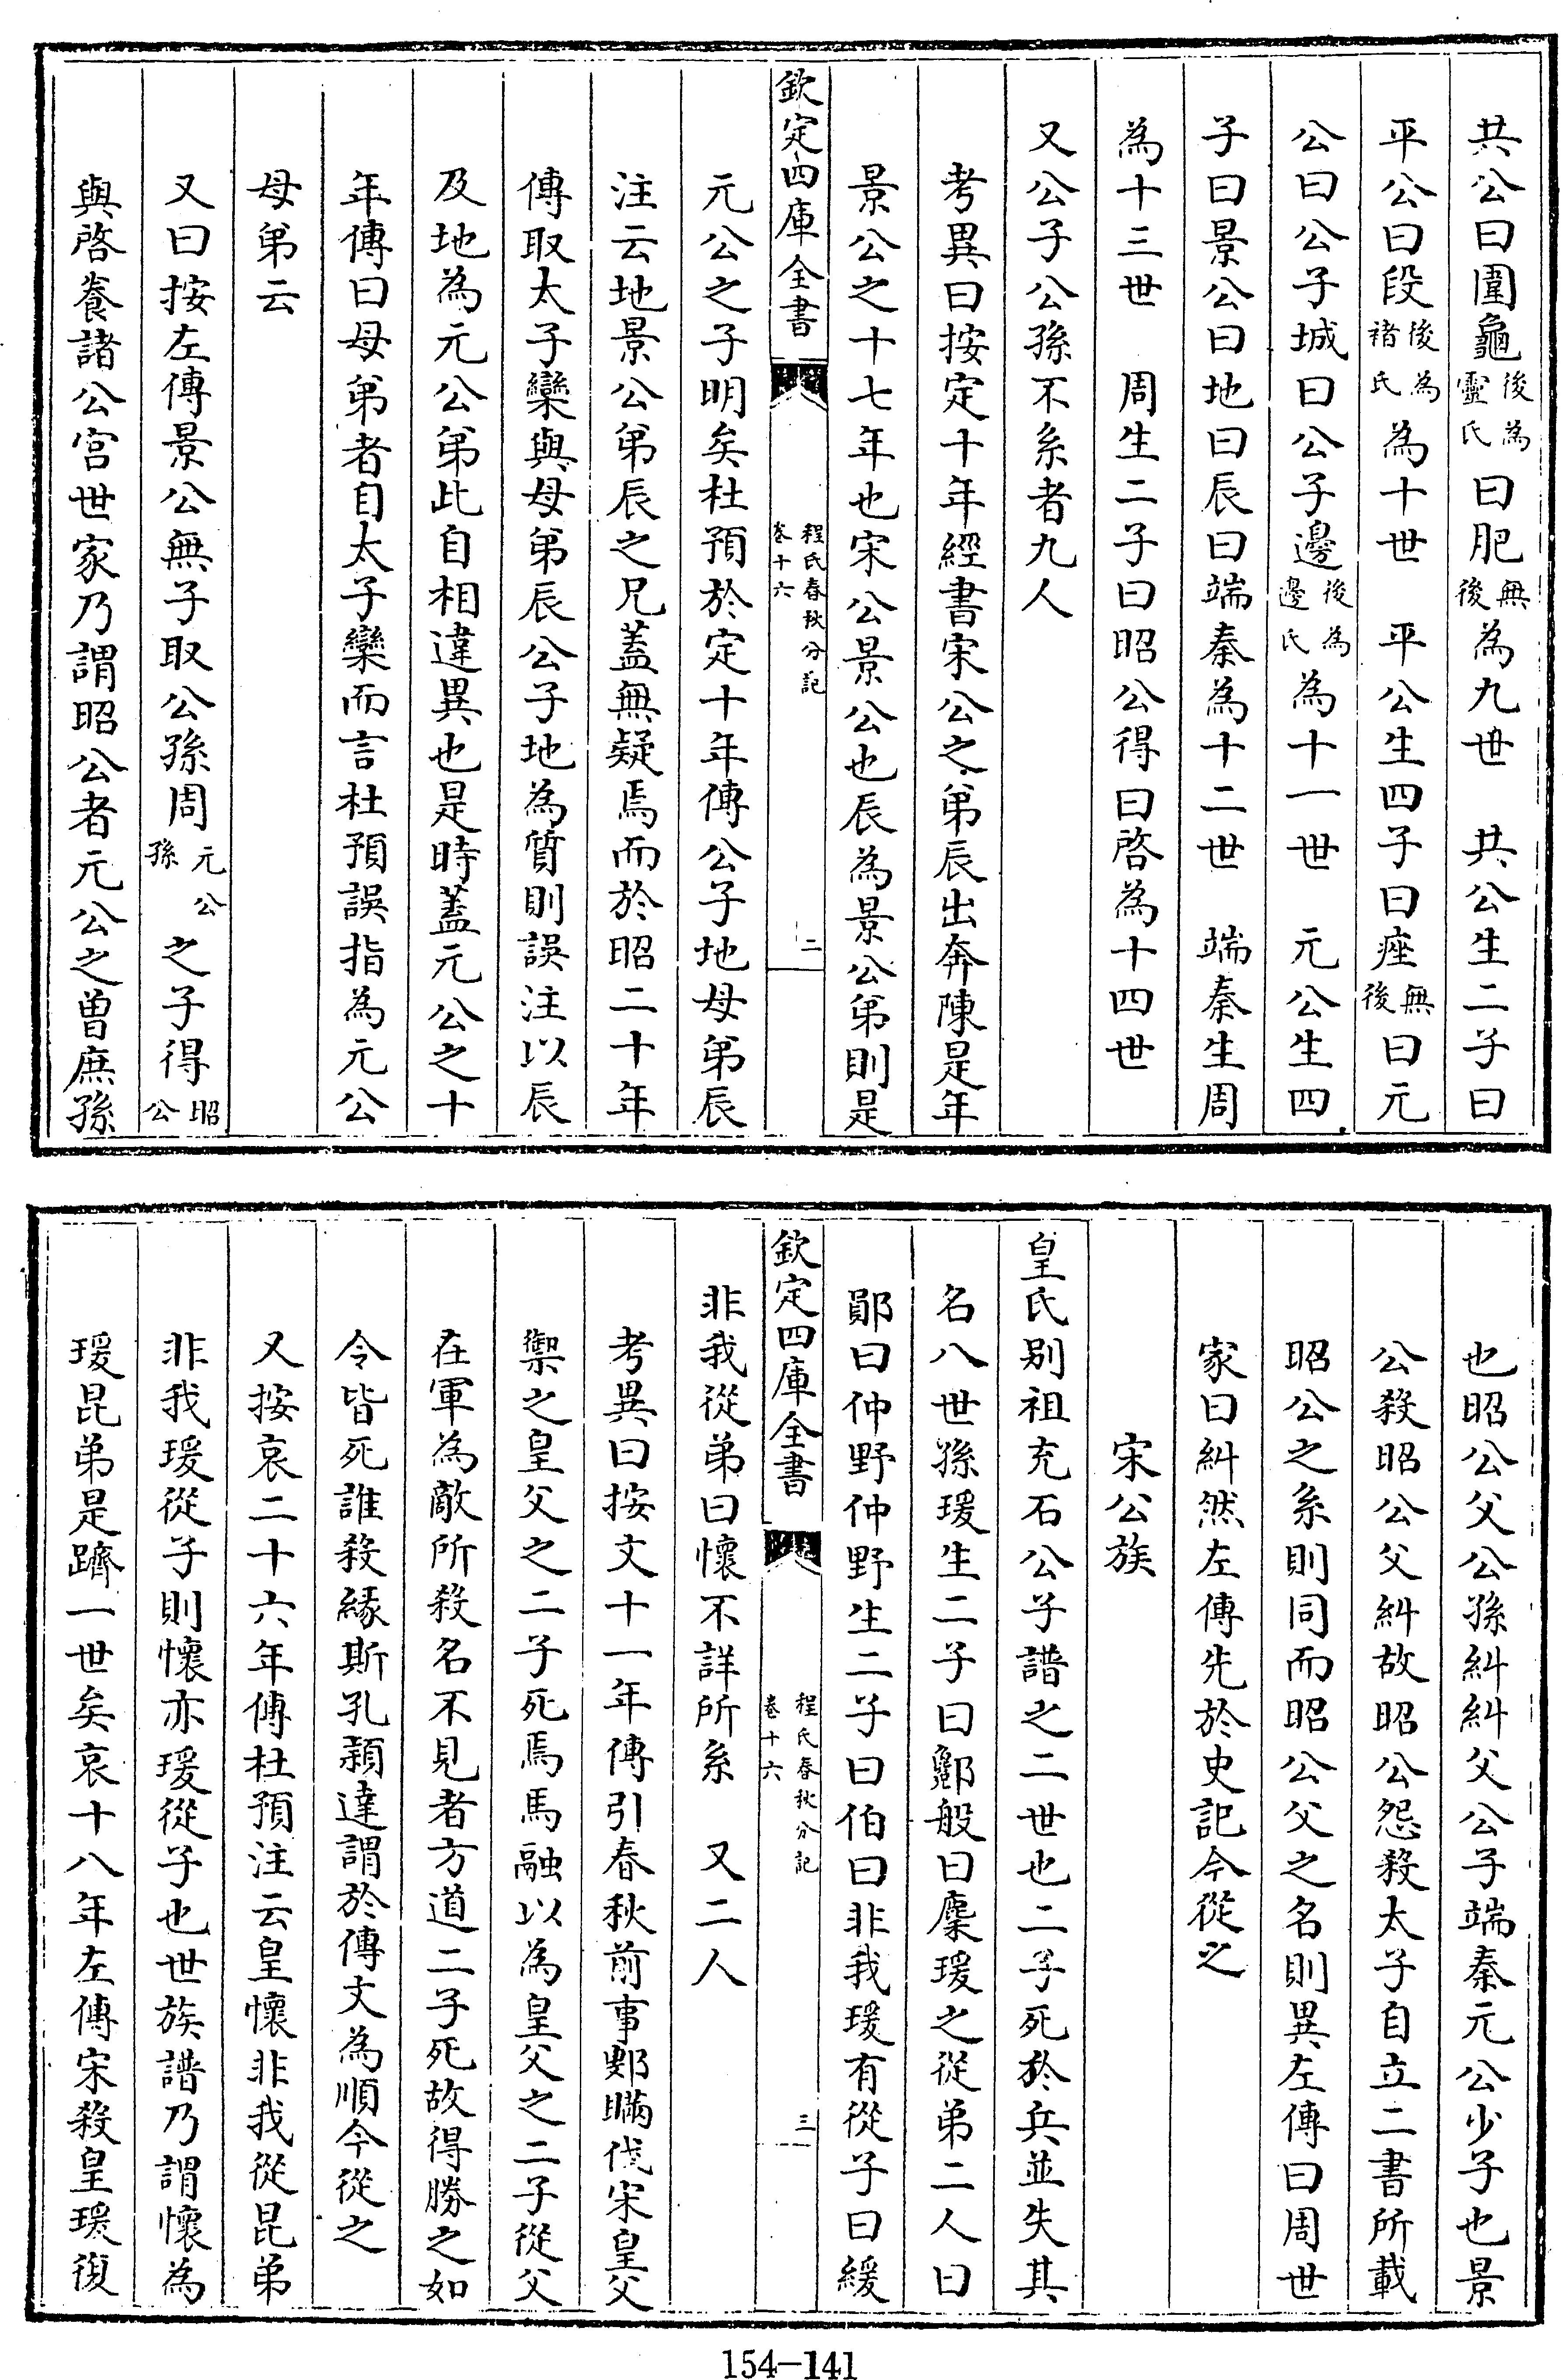 共公曰圍龜後為靈氏曰肥無後為九世　共公生二子曰
平公曰段後為褚氏為十世　平公生四子曰痤無後曰元
公曰公子城曰公子邊後為邊氏為十一世　元公生四
子曰景公曰地曰辰曰端秦為十二世　端秦生周
為十三世　周生二子曰昭公得曰啓為十四世
又公子公孫不系者九人
考異曰按定十年經書宋公之弟辰出奔陳是年
景公之十七年也宋公景公也辰為景公弟則是
欽定四庫全書　程氏春秋分記　卷十六　二
元公之子明矣杜預於定十年傳公子地母弟辰
注云地景公弟辰之兄蓋無疑焉而於昭二十年
傳取太子欒與母弟辰公子地為質則誤注以辰
及地為元公弟此自相違異也是時蓋元公之十
年傳曰母弟者自太子欒而言杜預誤指為元公
母弟云
又曰按左傳景公無子取公孫周元公孫之子得昭公
與啓養諸公宮世家乃謂昭公者元公之曾庶孫
也昭公父公孫糾糾父公子端秦元公少子也景
公殺昭公父糾故昭公怨殺太子自立二書所載
昭公之系則同而昭公父之名則異左傳曰周世
家曰糾然左傳先於史記今從之
宋公族
皇氏别祖充石公子譜之二世也二子死於兵並失其
名八世孫瑗生二子曰酁般曰麇瑗之從弟二人曰
鄖曰仲野仲野生二子曰伯曰非我瑗有從子曰緩
欽定四庫全書　程氏春秋分記　卷十六　三
非我從弟曰懷不詳所系　又二人
考異曰按文十一年傳引春秋前事鄋瞞伐宋皇父
禦之皇父之二子死焉馬融以為皇父之二子從父
在軍為敵所殺名不見者方道二子死故得勝之如
今皆死誰殺緣斯孔頴達謂於傳文為順今從之
又按哀二十六年傳杜預注云皇懷非我從昆弟
非我瑗從子則懷亦瑗從子也世族譜乃謂懷為
瑗昆弟是躋一世矣哀十八年左傳宋殺皇瑗復
154-141